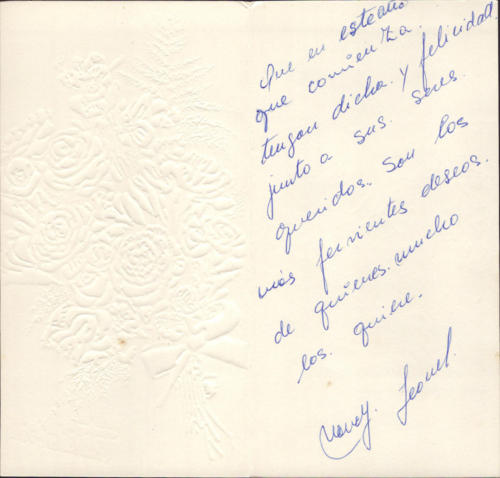 Que en este año
que comienza.
tengan dicha. y felicidad.
junto a sus. seres.
queridos. son los
más fervientes deseos.
de quienes. mucho
los. quiere.
Nancy. Leonel.